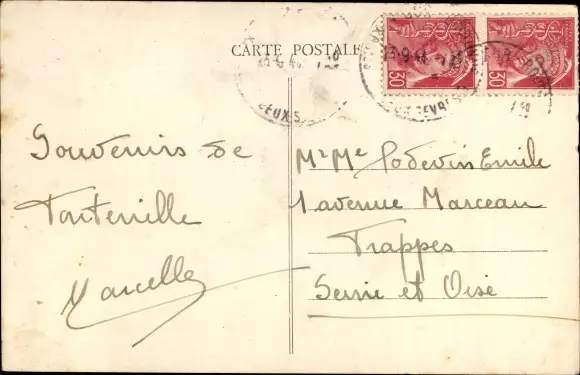 CARTE POSTALE
30
30
Souvenirs de
Marcelle
Mr Me Podevin Emile
1 avenue Marceau
Trappes
Seine et Oise